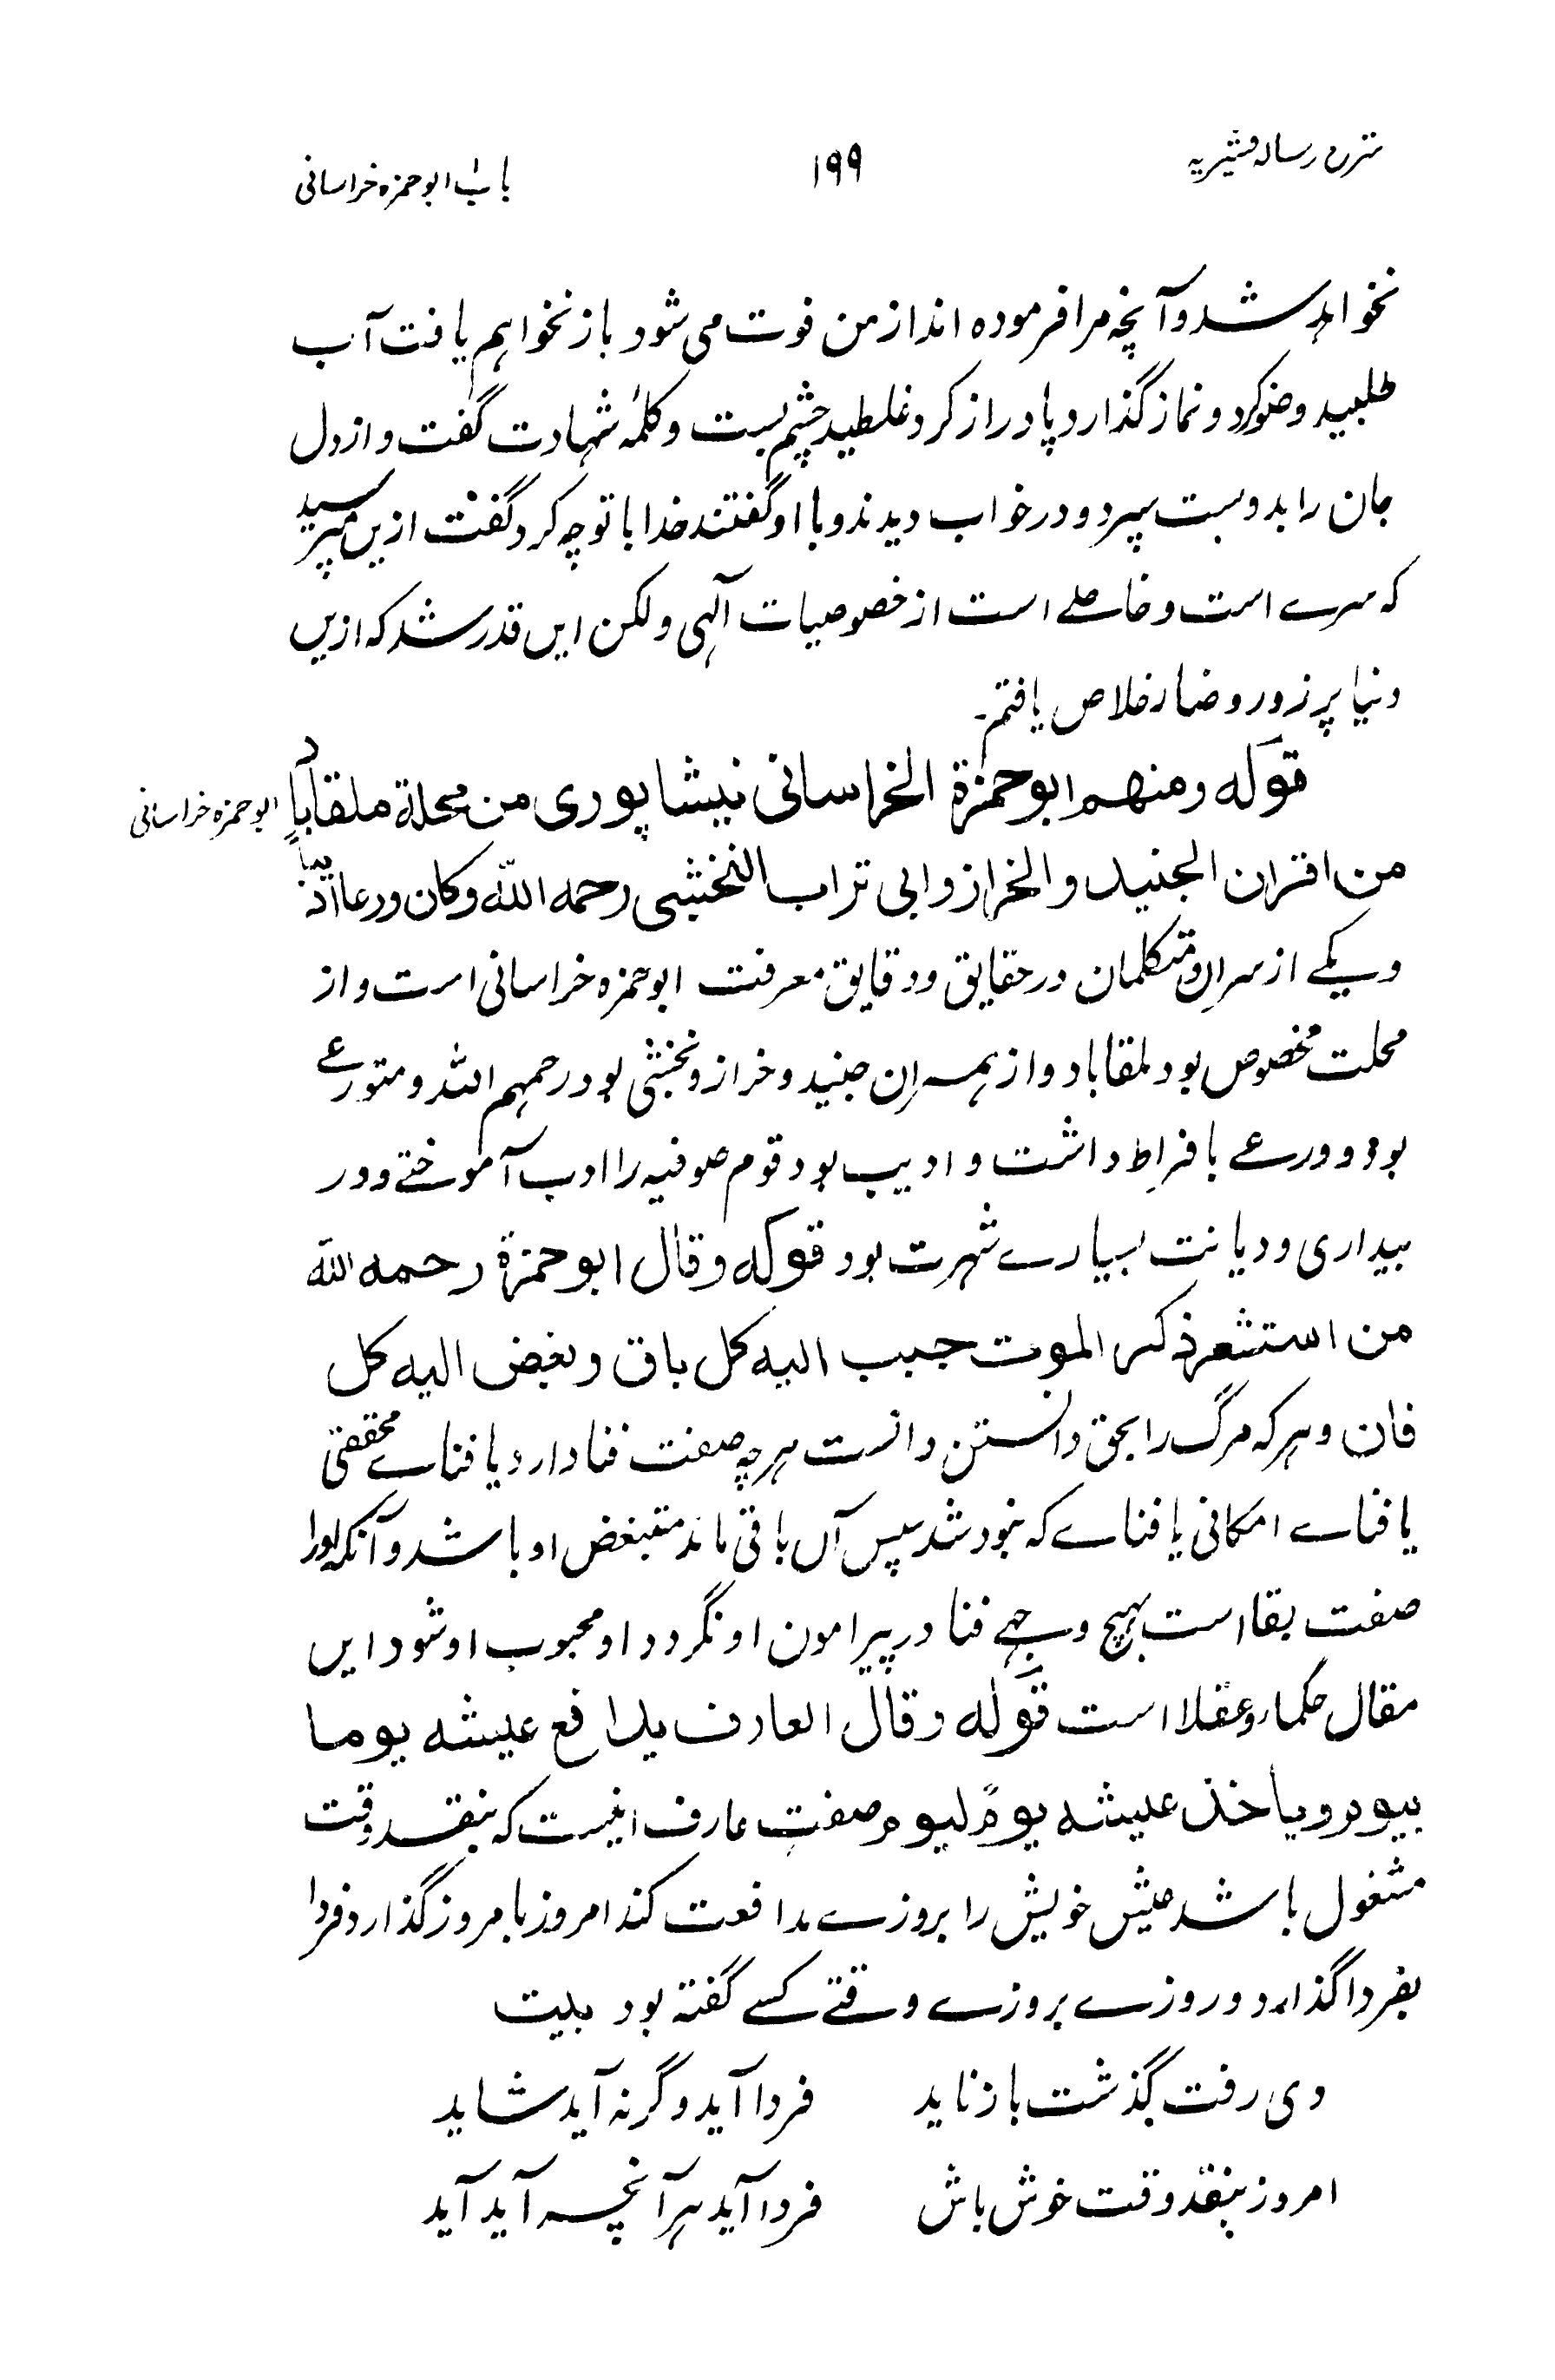 شرح رسالہ قشیریہ
۱۹۹
باب ابو حمزہ خراسانی
نخواہد شد و آنچہ مرا فرمودہ اند از من فوت می شود باز نخواہم یافت آب
طلبید وضو کرد و نماز گذارد پا دراز کرد غلطید چشم بست و کلمۂ شہادت گفت و از دل
جان را بدوست سپرد و در خواب دیدند و با او گفتند خدا با تو چہ کرد گفت ازیں مپرسید
کہ سرے است و خاصلے است از خصوصیات آلٰہی ولکن ایں قدر شد کہ ازیں
دنیا پر زور و ضار خلاص یافتم۔
قولہ ومنهم ابو حمزة الخراسانی نیشاپوری من محلة ملقاباد
ابو حمزہ خراسانی
من اقران الجنید والخراز وابی تراب النخشبی رحمه الله وکان ورعا ادیبا
و یکے از سران متکلمان در حقایق و دقایق معرفت ابو حمزہ خراسانی است و از
محلت مخصوص بود لمقاباد و از ہمسران جنید و خراز و نخشبی بود رحمہم اللہ و متورعے
بود و ورعے بافراط داشت و ادیب بود قوم صوفیہ را ادب آموختے و در
بیداری و دیانت بسیارے شہرت بود قوله وقال ابو حمزة رحمه الله
من استشعر ذکر الموت حبب الیه کل باق وبغض الیه کل
فان و ہر کہ مرگ را بحق دانستن دانست ہرچہ صفت فنا دارد یا فناے محققی
یا فناے امکانی یا فناے کہ نبود شد سپس آں باقی ماند متبغض او باشد و آنکہ اورا
صفت بقا است بہیچ وجہے فنا در پیرامون او نگردد او محبوب او شود ایں
مقال حکماء و عقلا است قوله وقال العارف یدافع عیشه یوما
بیوم ویاخذ عیشه یوم لیوم صفت عارف اینست کہ بنقد وقت
مشغول باشد عیش خویش را بروزے مدافعت کند امروز بامروز گذارد فردا
بفردا گذارد و روزے بروزے وقتے کسے گفتہ بود بیت
دی رفت گذشت باز ناید فردا آید و گر نہ آید شاید
امروز بنقد وقت خوش باش فردا آید ہر آنچہ آید آید